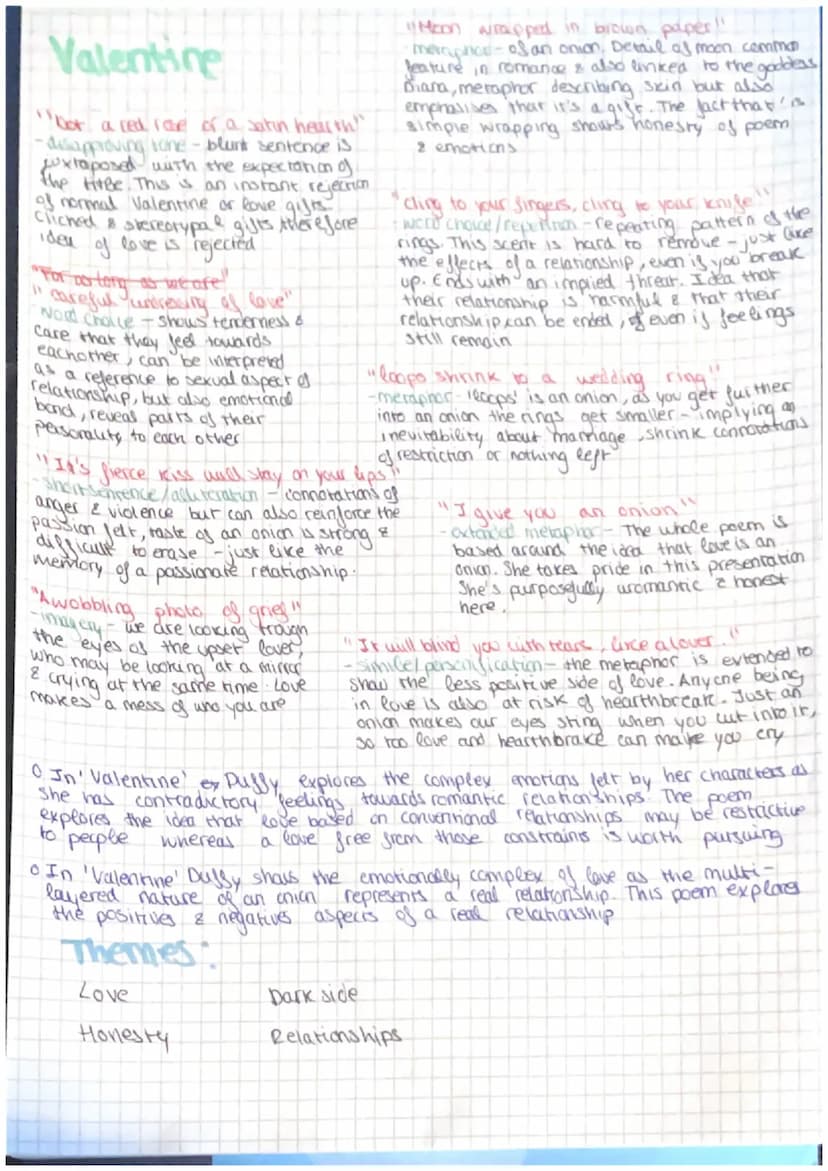 Valentine
"Not a red rose or a satin hearth"
-disapproving tone - blunt sentence is
juxtaposed with the expectation of
the title. This is an instant rejection
of normal Valentine or love gifts.
Cliched & stereotypal gifts therefore
idea of love is rejected
"For as long as we are"
"careful undressing of love"
word choice - shows tenderness &
care that they feel towards
eachother, can be interpreted
as a reference to sexual aspect of
relationship, but also emotional
bond, reveal parts of their
personality to each other
"It's fierce kiss will stay on your lips"
-short sentence/alliteration - connotations of
anger & violence but can also reinforce the
passion felt, taste of an onion is strong &
difficult to erase - just like the
memory of a passionate relationship.
"A wobbling photo of grief"
-imagery - we are looking trough
the eyes of the upset lover,
who may be looking at a mirror
& crying at the same time. Love
makes a mess of who you are
"Moon wrapped in brown paper"
metaphor - of an onion. Detail of moon common
feature in romance & also linked to the goddess
Diana, metaphor describing skin but also
emphasises that it's a gift. The fact that's
simple wrapping shows honesty of poem
& emotions
"cling to your fingers, cling to your knife"
-word choice/repetition - repeating pattern of the
rings. This scent is hard to remove - just like
the effects of a relationship, even if you break
up. Ends with an implied threat. Idea that
their relationship is harmful & that their
relationship can be ended, even if feelings
still remain
"loops shrink to a wedding ring"
-metaphor - 'loops' is an onion, as you get further
into an onion the rings get smaller - implying an
inevitability about marriage, shrink connotations
of restriction or nothing left
"I give you an onion"
-extended metaphor - The whole poem is
based around the idea that love is an
onion. She takes pride in this presentation
She's purposefully unromantic & honest
here.
"It will blind you with tears, like a lover."
-simile/personification - the metaphor is extended to
show the less positive side of love. Anyone being
in love is also at risk of hearthbreak. Just an
onion makes our eyes sting when you cut into it,
so too love and hearthbrake can make you cry
o In 'Valentine' Duffy explores the complex emotions felt by her characters as
she has contradictory feelings towards romantic relationships. The poem
explores the idea that love based on conventional relationships may be restrictive
to people whereas a love free from those constrains is worth pursuing
o In 'Valentine' Duffy shows the emotionally complex of love as the multi-
layered nature of an onion represents a real relationship. This poem explores
the positives & negatives aspects of a real relationship
Themes:
Love Dark side
Honesty Relationships